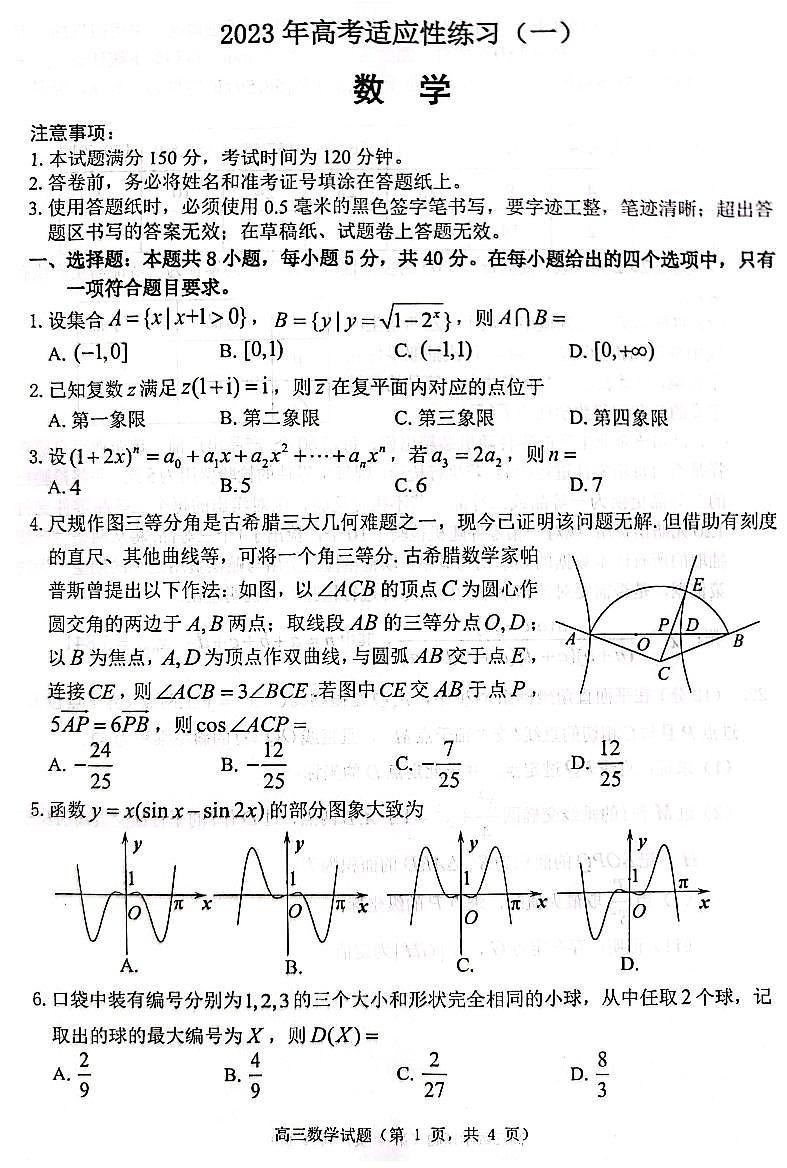 2023年高考适应性练习（一）
数 学
注意事项：
1. 本试题满分 150 分，考试时间为 120 分钟。
2. 答卷前，务必将姓名和准考证号填涂在答题纸上。
3. 使用答题纸时，必须使用 0.5 毫米的黑色签字笔书写，要字迹工整，笔迹清晰；超出答
题区书写的答案无效；在草稿纸、试题卷上答题无效。
一、选择题：本题共 8 小题，每小题 5 分，共 40 分。在每小题给出的四个选项中，只有
一项符合题目要求。
1. 设集合 A={x|x+1>0}，B={y|y=√(1-2^x)}，则 A∩B=
A. (-1,0] B. [0,1) C. (-1,1) D. [0,+∞)
2. 已知复数 z 满足 z(1+i)=i，则 z̅ 在复平面内对应的点位于
A. 第一象限 B. 第二象限 C. 第三象限 D. 第四象限
3. 设 (1+2x)^n=a₀+a₁x+a₂x²+⋯+aₙxⁿ，若 a₃=2a₂，则 n=
A. 4 B. 5 C. 6 D. 7
4. 尺规作图三等分角是古希腊三大几何难题之一，现今已证明该问题无解. 但借助有刻度
的直尺、其他曲线等，可将一个角三等分. 古希腊数学家帕
普斯曾提出以下作法：如图，以 ∠ACB 的顶点 C 为圆心作
圆交角的两边于 A, B 两点；取线段 AB 的三等分点 O, D；
以 B 为焦点，A, D 为顶点作双曲线，与圆弧 AB 交于点 E，
连接 CE，则 ∠ACB=3∠BCE. 若图中 CE 交 AB 于点 P，
5AP=6PB，则 cos∠ACP=
A O P D B E C
A. -24/25 B. -12/25 C. -7/25 D. 12/25
5. 函数 y=x(sin x-sin 2x) 的部分图象大致为
y 1 O π x
y 1 O π x
y 1 O π x
y 1 O π x
A. B. C. D.
6. 口袋中装有编号分别为 1,2,3 的三个大小和形状完全相同的小球，从中任取 2 个球，记
取出的球的最大编号为 X，则 D(X)=
A. 2/9 B. 4/9 C. 2/27 D. 8/3
高三数学试题（第 1 页，共 4 页）